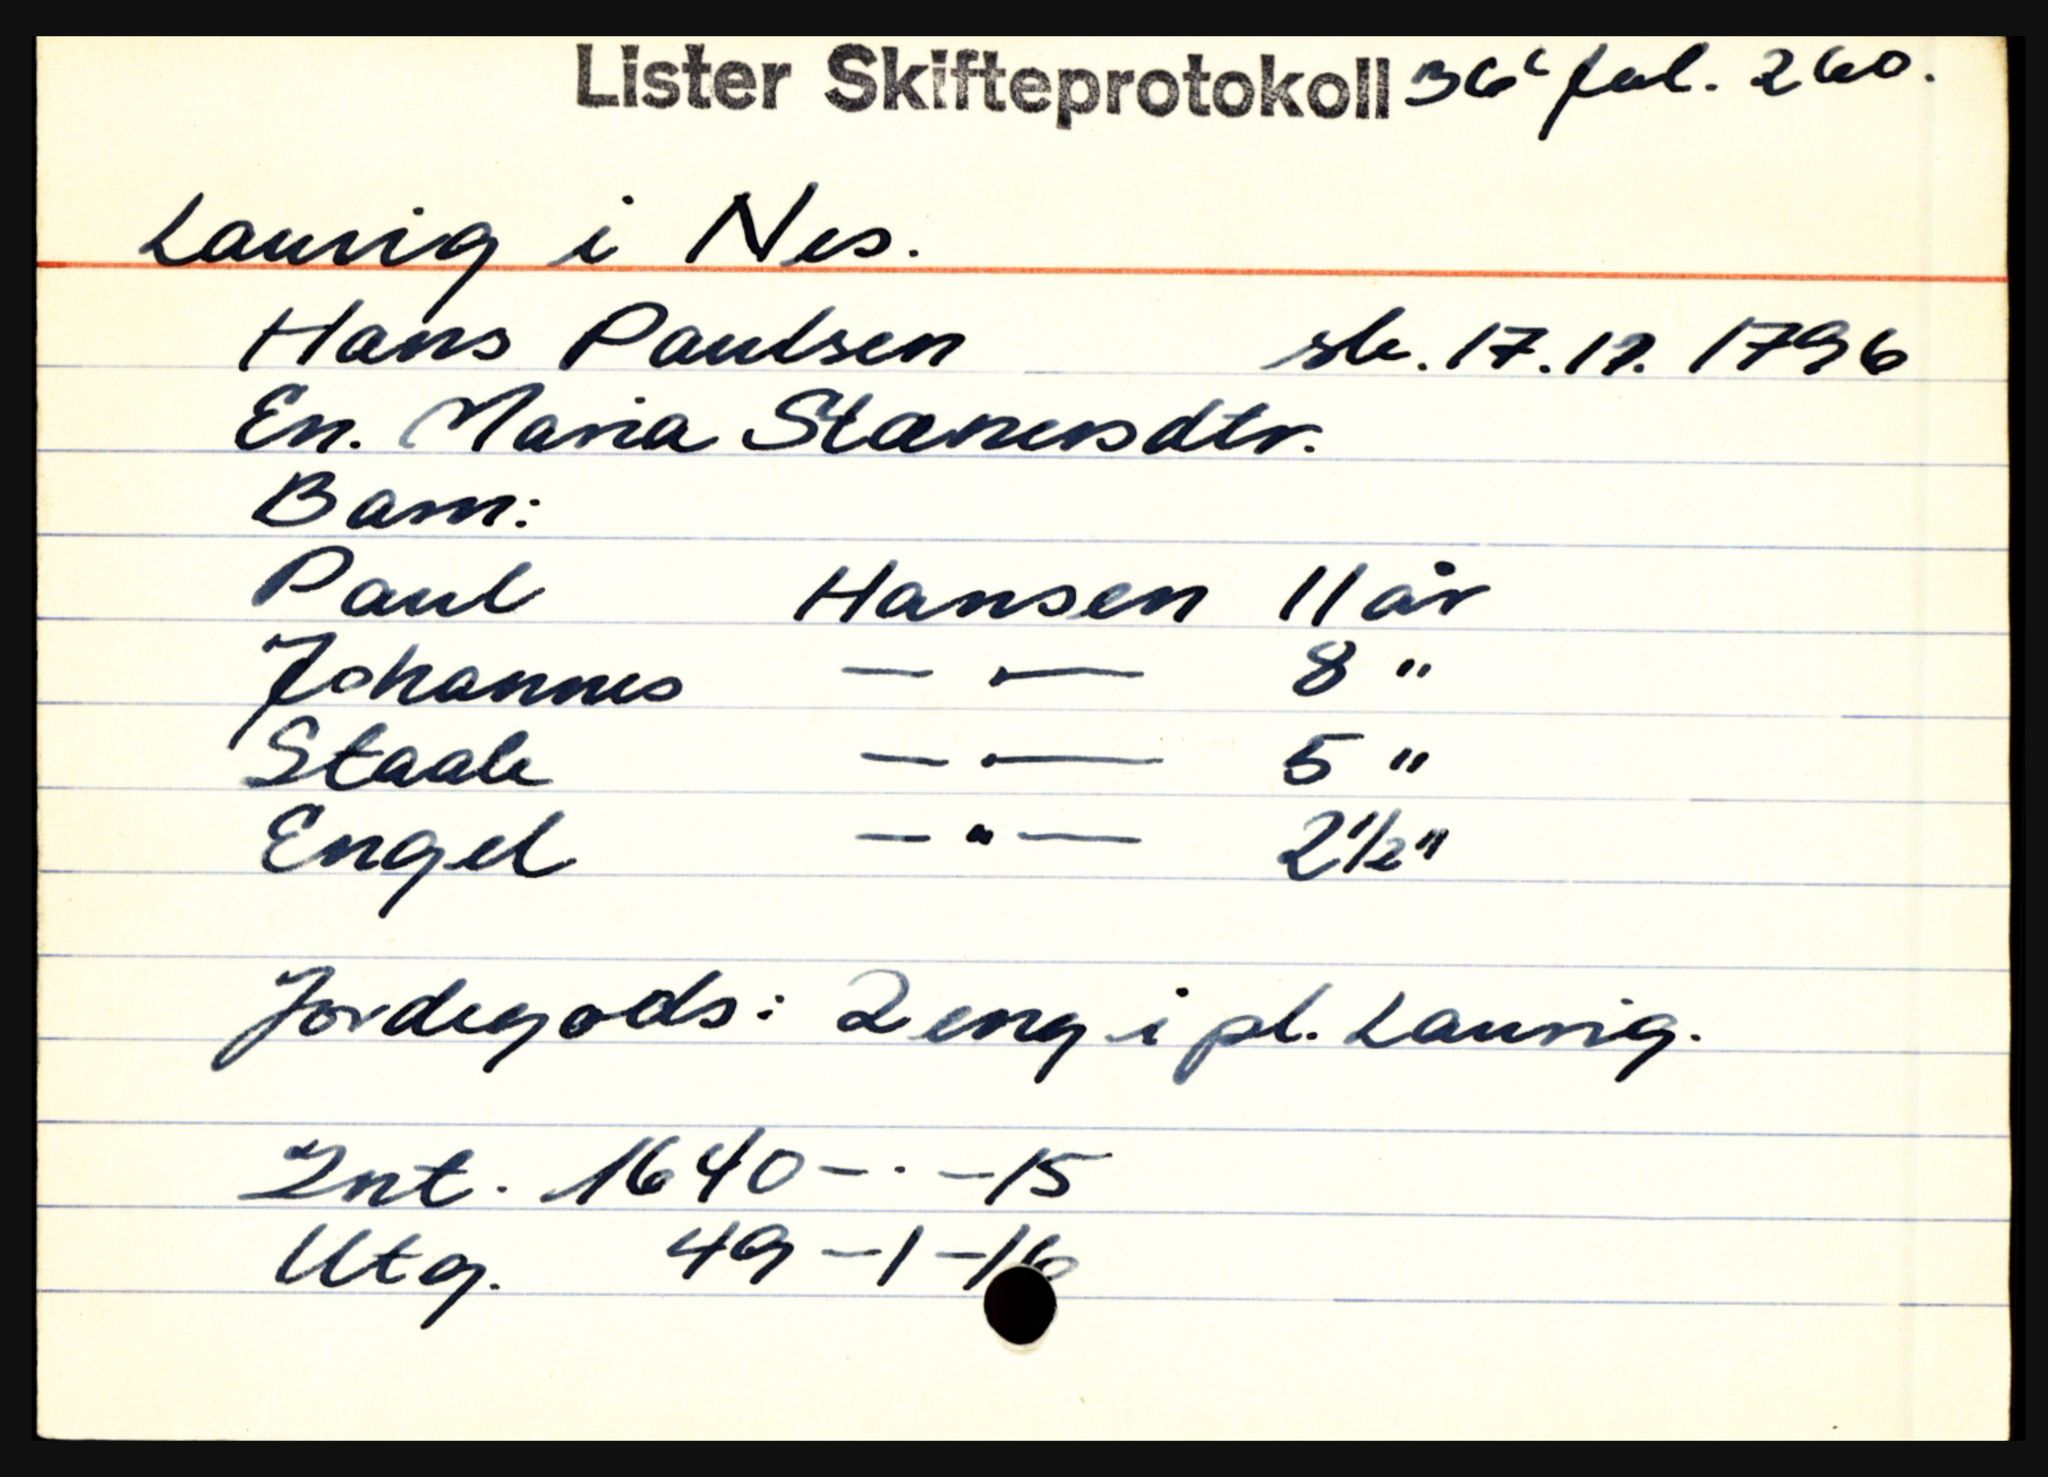 Lister Skifteprotokoll 36c fol. 260.
Launig i Nes.
Hans Paulsen sk. 17.12. 1796
En. Maria Stænersdtr.
Barn:
Paul Hansen 11 år
Johannes — . — 8 "
Staale — . — 5 "
Engel — " — 2 1/2 "
Jordegods: 2 eng i pl. Launig.
Int. 1640 - . - 15
Utg. 49 - 1 - 16